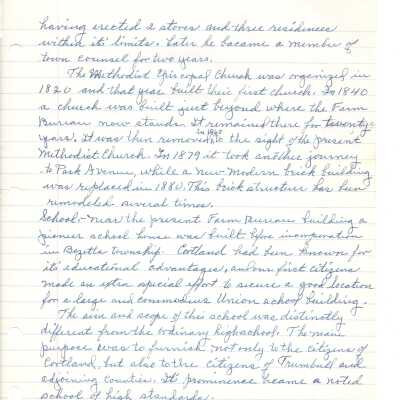 having erected 2 stores and three residences
within it's limits. Later he became a member of
town counsel for two years.
The Methodist Episcopal Church was organized in
1820 and that year built their first church. In 1840
a church was built just beyond where the Farm
Bureau now stands. It remained there for twenty
years. It was then removed in 1860 to the sight of the present
Methodist Church. In 1879 it took another journey
to Park Avenue, while a new modern brick building
was replaced in 1880. This brick structure has been
remodeled several times.
School - Near the present Farm Bureau building a
pioneer school house was built before incorporation
in Bazetta township. Cortland had been known for
it's educational advantages, and our first citizens
made an extra special effort to secure a good location
for a large and commodious Union school building.
The aim and scope of this school was distinctly
different from the ordinary highschool. The main
purpose was to furnish not only to the citizens of
Cortland, but also to the citizens of Trumbull and
adjoining counties. It's prominence became a noted
school of high standards.